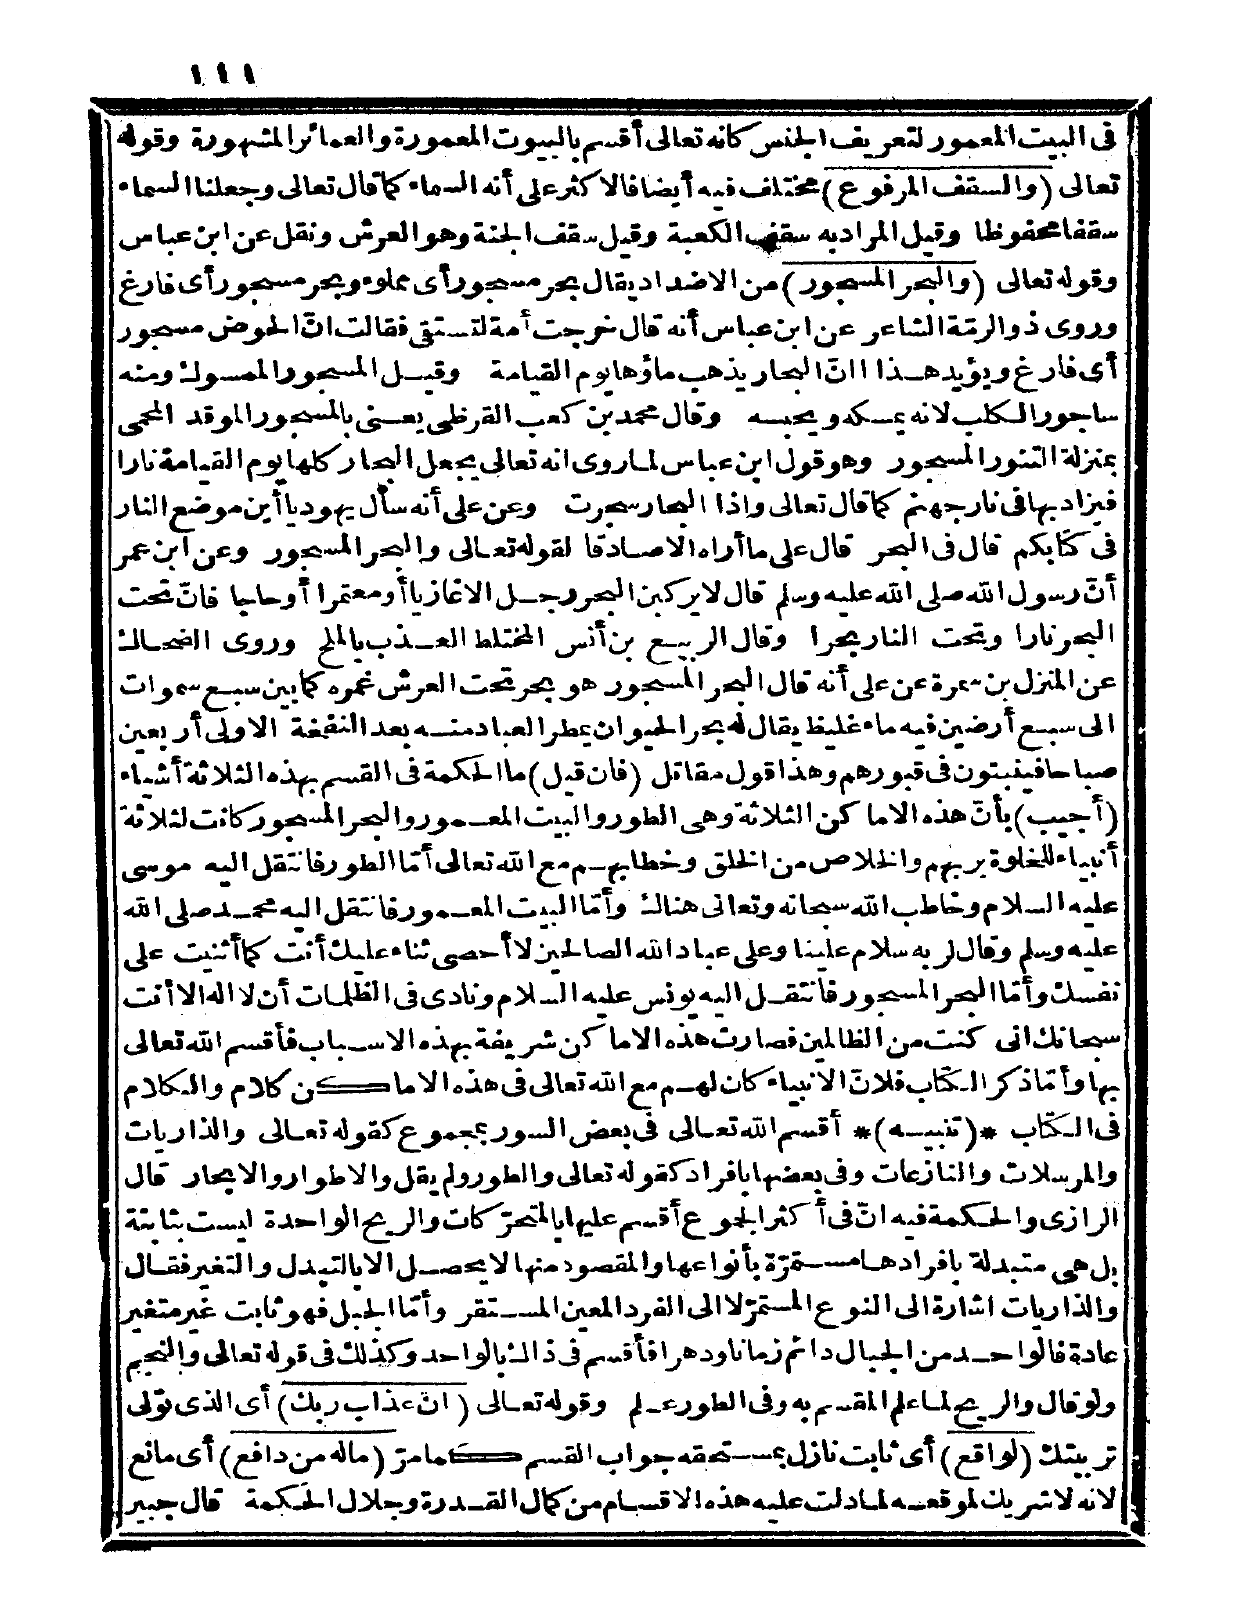 ١١١
فى البيت المعمور لتعريف الجنس كانه تعالى أقسم بالبيوت المعمورة والعمائر المشهورة وقوله
تعالى (والسقف المرفوع) مختلف فيه أيضا فالاكثر على أنه السماء كما قال تعالى وجعلنا السماء
سقفا محفوظا وقيل المراد به سقف الكعبة وقيل سقف الجنة وهو العرش ونقل عن ابن عباس
وقوله تعالى (والبحر المسجور) من الاضداد يقال بحر مسجور أى مملوء وبحر مسجور أى فارغ
وروى ذو الرمّة الشاعر عن ابن عباس أنه قال خرجت أمة لتستقى فقالت انّ الحوض مسجور
أى فارغ ويؤيد هذا انّ البحار يذهب ماؤها يوم القيامة وقيل المسجور الممسوك ومنه
ساجور الكلب لانه يمسكه ويحبسه وقال محمد بن كعب القرظى يعنى بالمسجور الموقد المحمى
بمنزلة التنور المسجور وهو قول ابن عباس لما روى انه تعالى يجعل البحار كلها يوم القيامة نارا
فيزاد بها فى نار جهنم كما قال تعالى واذا البحار سجرت وعن على أنه سأل يهوديا أين موضع النار
فى كتابكم قال فى البحر قال على ما أراه الا صادقا لقوله تعالى والبحر المسجور وعن ابن عمر
أنّ رسول الله صلى الله عليه وسلم قال لا يركبن البحر رجل الا غازيا أو معتمرا أو حاجا فانّ تحت
البحر نارا وتحت النار بحرا وقال الربيع بن أنس المختلط العذب بالملح وروى الضحاك
عن المنزل بن سمرة عن على أنه قال البحر المسجور هو بحر تحت العرش غمره كما بين سبع سموات
الى سبع أرضين فيه ماء غليظ يقال له بحر الحيوان يمطر العباد منه بعد النفخة الاولى أربعين
صباحا فينبتون فى قبورهم وهذا قول مقاتل (فان قيل) ما الحكمة فى القسم بهذه الثلاثة أشياء
(أجيب) بأنّ هذه الاماكن الثلاثة وهى الطور والبيت المعمور والبحر المسجور كانت لثلاثة
أنبياء للخلوة بربهم والخلاص من الخلق وخطابهم مع الله تعالى أمّا الطور فانتقل اليه موسى
عليه السلام وخاطب الله سبحانه وتعالى هنالك وأمّا البيت المعمور فانتقل اليه محمد صلى الله
عليه وسلم وقال لربه سلام علينا وعلى عباد الله الصالحين لا أحصى ثناء عليك أنت كما أثنيت على
نفسك وأمّا البحر المسجور فانتقل اليه يونس عليه السلام ونادى فى الظلمات أن لا اله الا أنت
سبحانك انى كنت من الظالمين فصارت هذه الاماكن شريفة بهذه الاسباب فأقسم الله تعالى
بها وأمّا ذكر الكتاب فلانّ الانبياء كان لهم مع الله تعالى فى هذه الاماكن كلام والكلام
فى الكتاب *(تنبيه)* أقسم الله تعالى فى بعض السور بمجموع كقوله تعالى والذاريات
والمرسلات والنازعات وفى بعضها بافراد كقوله تعالى والطور ولم يقل والاطوار والابحار قال
الرازى والحكمة فيه انّ فى أكثر الجوع أقسم عليها بالمتحرّكات والريح الواحدة ليست بثابتة
بل هى متبدلة بافرادها مستمرّة بأنواعها والمقصود منها لا يحصل الا بالتبدل والتغير فقال
والذاريات اشارة الى النوع المستمرّ لا الى الفرد المعين المستقر وأمّا الجبل فهو ثابت غير متغير
عادة فالواحد من الجبال دائم زمانا ودهرا فأقسم فى ذلك بالواحد وكذلك فى قوله تعالى والنجم
ولو قال والريح لما علم المقسم به وفى الطور علم وقوله تعالى (انّ عذاب ربك) أى الذى تولى
تربيتك (لواقع) أى ثابت نازل بمستحقه جواب القسم كما مرّ (ماله من دافع) أى مانع
لانه لا شريك لموقعه لما دلت عليه هذه الاقسام من كمال القدرة وجلال الحكمة قال جبير